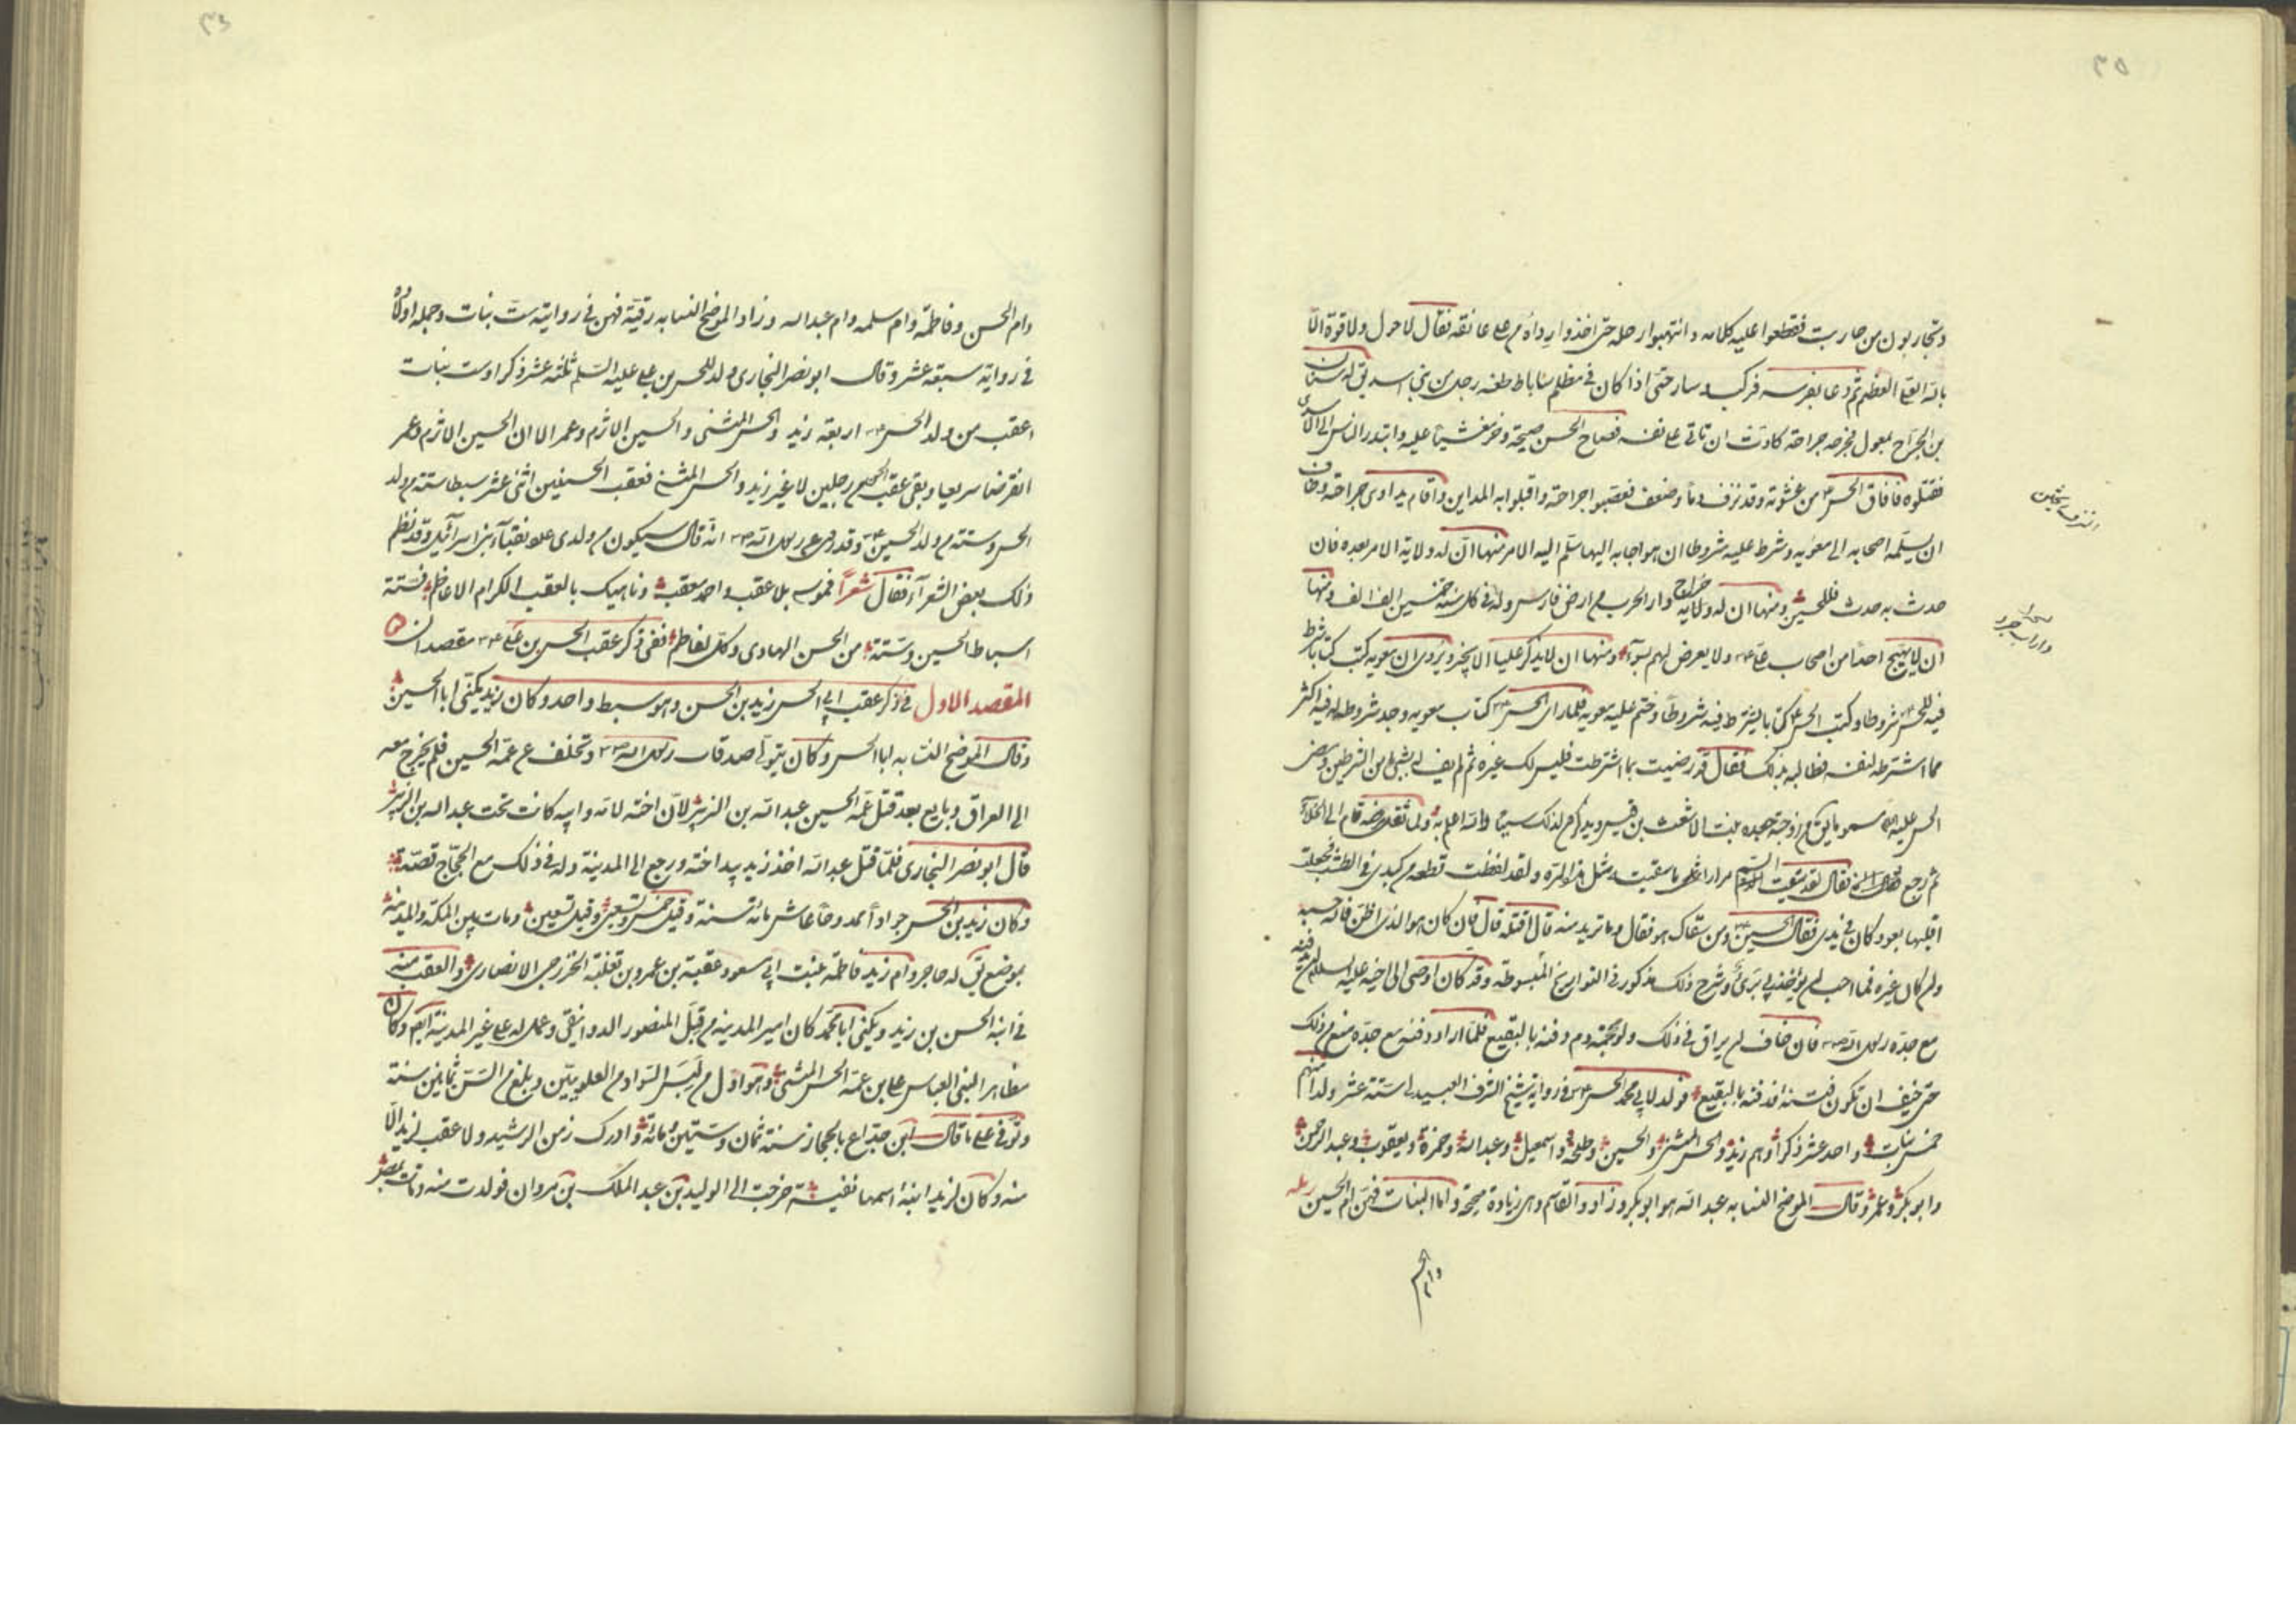 ٣٥
وتحاربون من حاربت فقطعوا عليه كلامه وانتهبوا رحله حتى اخذوا رداه من على عاتقه فقال لا حول ولا قوة الا
بالله العلي العظيم ثم دعا بفرسه فركب وسار حتى اذا كان في مظلم ساباط طعنه رجل من بني اسد يق له سنان
بن الجراح بمعول فجرحه جراحة كادت ان تاتي على نفسه فصاح الحسن صيحة وخر مغشيا عليه وابتدر الناس الى الاسدي
فقتلوه فافاق الحسن من غشوته وقد نزف دما وضعف فعصبوا جراحته واقبلوا به المداين واقام يداوي جراحته وخاف
ان يسلمه اصحابه الى معويه وشرط عليه شروطا ان هو اجابه اليها سلم اليه الامر منها ان له ولاية الامر بعده فان
حدث به حدث فللحسين ومنها ان له ولاية خراج دار الحرب من ارض فارس وله في كل سنة خمسين الف الف ومنها
ان لا يهيج احدا من اصحاب علي ولا يعرض لهم بسوآء ومنها ان لا يذكر عليا الا بخير ويروى ان معويه كتب كتابا شرط
فيه للحسن شروطا وكتب الحسن كتابا يشترط فيه شروطا وختم عليه معويه فلما راى الحسن كتاب معويه وجد شروطه له فيه اكثر
مما اشترطه لنفسه فطالبه بذلك فقال قد رضيت بما اشترطت فليس لك غيره ثم لم يف له بشئ من الشرطين وقبض
الحسن عليه السلم مسموما يق من زوجته جعده بنت الاشعث بن قيس ويذكر في ذلك سببا والله اعلم به ولما ثقل مرضه قام الى الخلآء
ثم رجع فقال لقد سقيت السم مرارا ما سقيت مثل هذه المرة ولقد لفظت قطعه من كبدي في الطشت فجعلت
اقلبها بعود كان في يدي فقال الحسين ومن سقاك هو فقال وما تريد منه قال اقتله قال فان كان هو الذي اظن فالله حسبه
وان كان غيره فما احب ان يؤخذ بي برئ وشرح ذلك مذكور في التواريخ المبسوطة وقد كان اوصى الى اخيه عليه السلام ان يدفنه
مع جده رسول الله فان خاف ان يراق في ذلك ولو محجمة دم دفنه بالبقيع فلما اراد دفنه مع جده منع من ذلك
حتى خيف ان تكون فتنه فدفنه بالبقيع فولد لابي محمد الحسن في رواية شيخ الشرف العبيدلي ستة عشر ولدا منهم
خمس بنات واحد عشر ذكرا وهم زيد والحسن المثنى والحسين وطلحه واسمعيل وعبد الله وحمزة ويعقوب وعبد الرحمن
وابو بكر وعمر وقال الموضح النسابه عبد الله هو ابو بكر وزاد والقاسم وهي زيادة صحيحة واما البنات فهن ام الحسين رمله
وام الحسن وفاطمة وام سلمه وام عبد الله وزاد الموضح النسابه رقية فهن في روايته ست بنات وجمله اولاده
في روايته سبعة عشر وقال ابو نصر البخاري ولد للحسن بن علي عليه السلم ثلثة عشر ذكرا وست بنات
اعقب من ولد الحسن اربعة زيد والحسن المثنى والحسين الاثرم وعمر الا ان الحسين الاثرم وعمر
انقرضا سريعا وبقى عقب الحسن من رجلين لا غير زيد والحسن المثنى فعقب الحسنين اثنى عشر سبطا ستة من ولد
الحسن وستة من ولد الحسين وقد روى عن رسول الله انه قال سيكون من ولدي عدد نقبآء بني اسرآئيل وقد نظم
ذلك بعض الشعرآء فقال شعرا فموسى بلا عقب واحمد معقب وناهيك بالعقب الكرام الاعاظم فستة
اسباط الحسين وستة من الحسن الهادي وكل لفاطم ففي ذكر عقب الحسن بن علي مقصدان
المقصد الاول في ذكر عقب ابي الحسن زيد بن الحسن وهو سبط واحد وكان زيد يكنى ابا الحسين
وقال الموضح النسابه ابا الحسن وكان يتولى صدقات رسول الله وتخلف عن عمه الحسين فلم يخرج معه
الى العراق وبايع بعد قتل عمه الحسين عبد الله بن الزبير لان اخته لامه وابيه كانت تحت عبد الله بن الزبير
قال ابو نصر البخاري فلما قتل عبد الله اخذ زيد بيد اخته ورجع الى المدينة وله في ذلك مع الحجاج قصة
وكان زيد بن الحسن جوادا ممدوحا عاش مائة سنة وقيل خمس وتسعين وقيل تسعين ومات بين المكة والمدينة
بموضع يق له حاجر وام زيد فاطمة بنت ابي مسعود عقبة بن عمرو بن ثعلبة الخزرجي الانصاري والعقب منه
في ابنه الحسن بن زيد ويكنى ابا محمد كان امير المدينه من قبل المنصور الدوانيقي وعمل له على غير المدينة ايضا وكان
مظاهرا لبني العباس على بني عمه الحسن المثنى وهو اول من لبس السواد من العلويين وبلغ من السن ثمانين سنة
وتوفى على ما قال ابن خداع بالحجاز سنة ثمان وستين ومائة وادرك زمن الرشيد ولا عقب لزيد الا
منه وكان لزيد ابنة اسمها نفيسة خرجت الى الوليد بن عبد الملك بن مروان فولدت منه وماتت بمصر